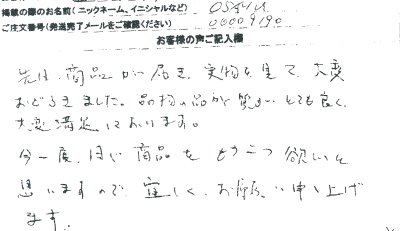 掲載の際のお名前(ニックネーム、イニシャルなど)
ご注文番号(発送完了メールをご確認ください) 00009190
お客様の声ご記入欄
先日、商品が届き、実物を見て、大変
おどろきました。品物の品が質がとても良く、
大変満足しております。
今一度、同じ商品をもう一つ欲しいと
思いますので、宜しく、お願い申し上げ
ます。